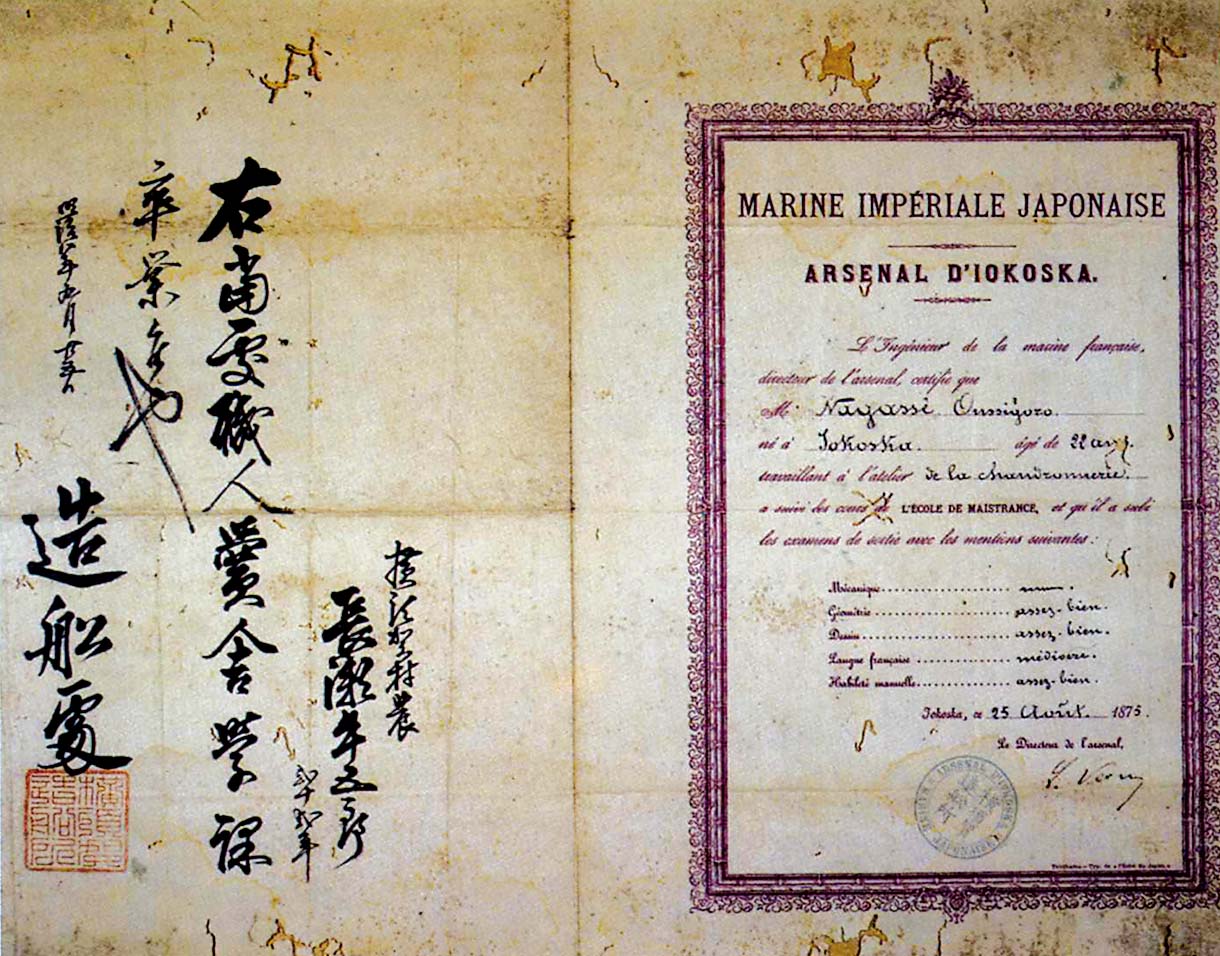 MARINE IMPÉRIALE JAPONAISE
ARSENAL D'IOKOSKA.
L'Ingénieur de la marine française,
directeur de l'arsenal, certifie que
Mr Nagassé Oussigoro
né à Iokoska. âgé de 22 ans.
travaillant à l'atelier de la chaudronnerie.
a suivi les cours de L'ÉCOLE DE MAISTRANCE, et qu'il a subi
les examens de sortie avec les mentions suivantes :
Mécanique
Géométrie assez-bien.
Dessin assez-bien.
Langue française médiocre.
Habileté manuelle assez-bien.
Iokoska, ce 25 Août. 1875.
Le Directeur de l'arsenal,
L. Verny
ARSENAL D'IOKOSKA
JAPONAISE
横須賀村農
長瀬牛五郎
弐十弐年
右當處職人黌舎学課
卒業候也
明治八年
造船處